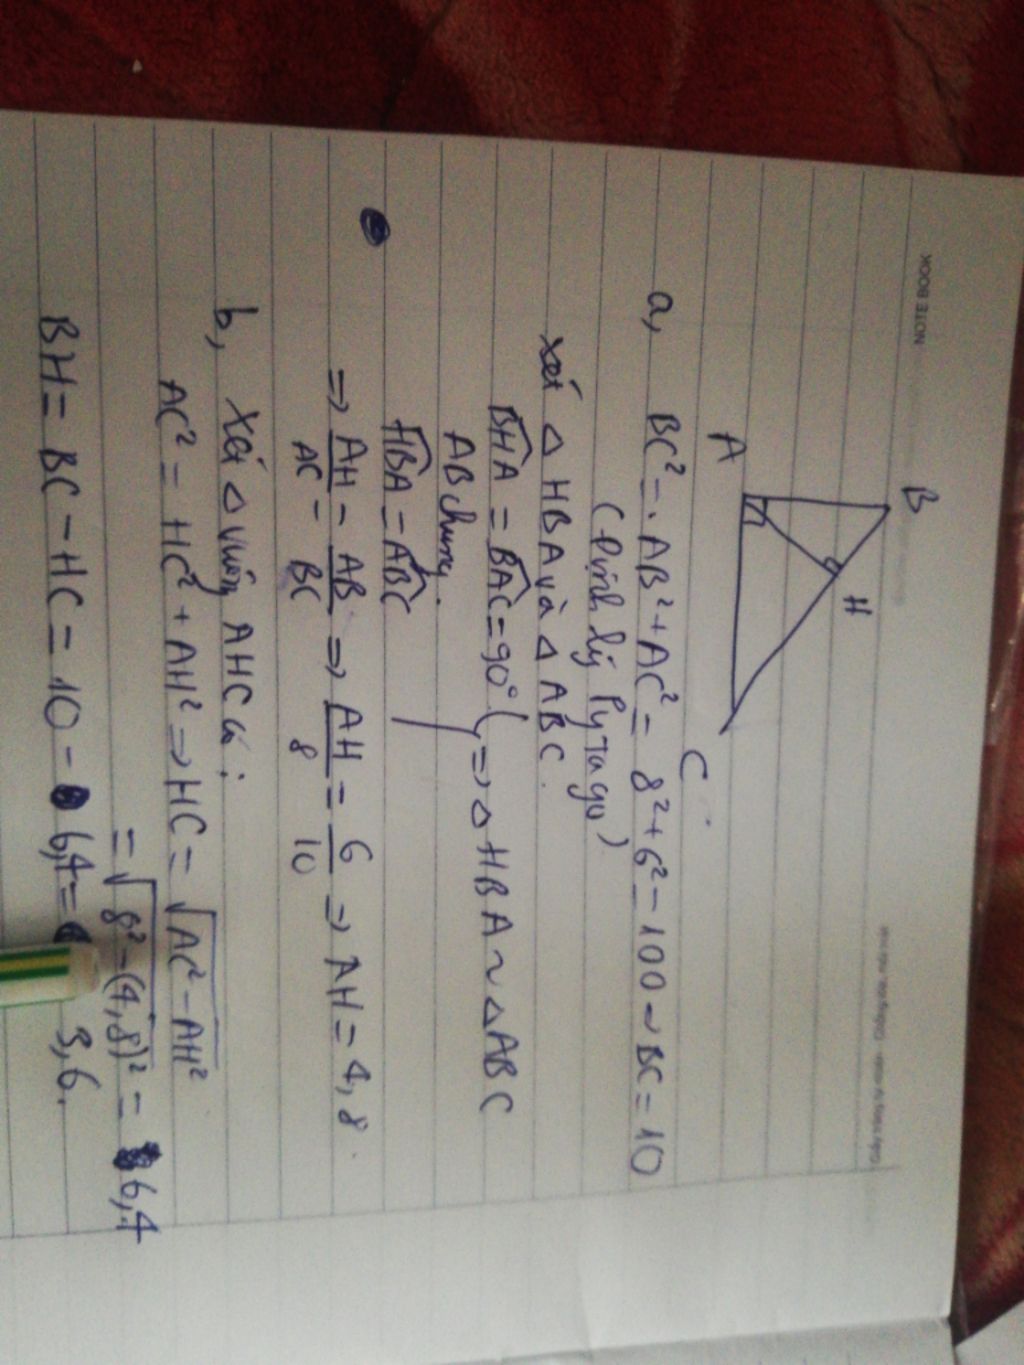 NOTE BOOK
B
H
A
C
a, BC² = AB² + AC² = 8² + 6² = 100 ~ BC = 10
(Định lý Pytago)
Xét △ HBA và △ ABC.
BHA = BAC = 90°
AB chung.
HBA = ABC
=> △ HBA ~ △ ABC
=> AH/AC = AB/BC => AH/8 = 6/10 => AH = 4,8.
b, Xét △ vuông AHC có:
AC² = HC² + AH² => HC = √AC² - AH²
= √8² - (4,8)² = 6,4
BH = BC - HC = 10 - 6,4 = 3,6.